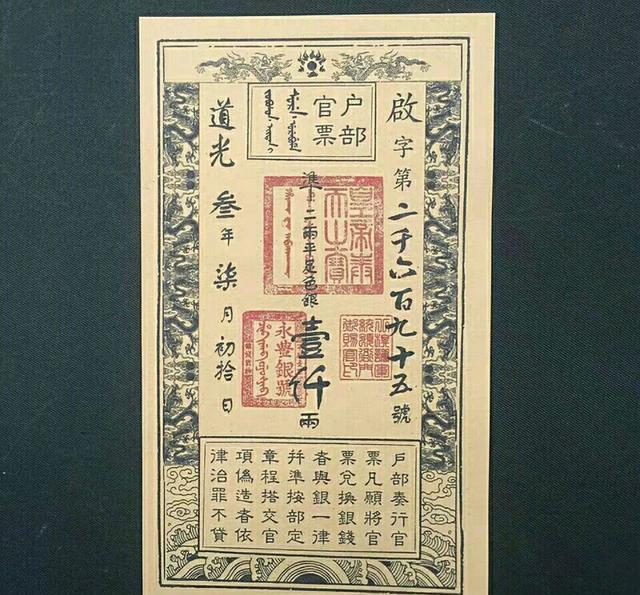 户部
官票
啟字第二千六百九十五號
準二兩平足色銀壹仟兩
道光叁年柒月初拾日
皇帝奉
天之寶
永豐銀號
戶部奏行官
票凡願將官
票兌換銀錢
者與銀一律
并準按部定
章程搭交官
項偽造者依
律治罪不貸